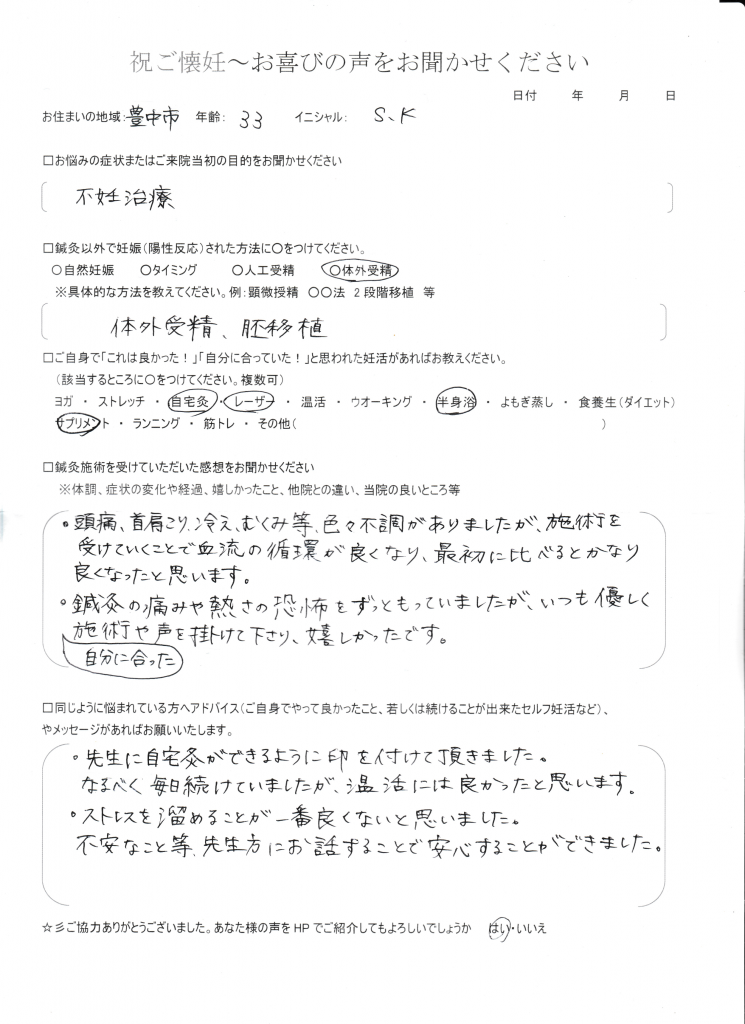 祝ご懐妊～お喜びの声をお聞かせください
日付　年　月　日
お住まいの地域：豊中市　年齢：33　イニシャル：S、K
□お悩みの症状またはご来院当初の目的をお聞かせください
不妊治療
□鍼灸以外で妊娠（陽性反応）された方法に○をつけてください。
○自然妊娠　○タイミング　○人工受精　○体外受精
※具体的な方法を教えてください。例：顕微授精　○○法　2段階移植　等
体外受精、胚移植
□ご自身で「これは良かった！」「自分に合っていた！」と思われた妊活があればお教えください。
（該当するところに○をつけてください。複数可）
ヨガ ・ ストレッチ ・ 自宅灸 ・ レーザー ・ 温活 ・ ウオーキング ・ 半身浴 ・ よもぎ蒸し ・ 食養生（ダイエット）
サプリメント ・ ランニング ・ 筋トレ ・ その他（　）
□鍼灸施術を受けていただいた感想をお聞かせください
※体調、症状の変化や経過、嬉しかったこと、他院との違い、当院の良いところ等
・頭痛、首肩こり、冷え、むくみ等、色々不調がありましたが、施術を
受けていくことで血流の循環が良くなり、最初に比べるとかなり
良くなったと思います。
・鍼灸の痛みや熱さの恐怖をずっともっていましたが、いつも優しく
施術や声を掛けて下さり、嬉しかったです。
自分に合った
□同じように悩まれている方へアドバイス（ご自身でやって良かったこと、若しくは続けることが出来たセルフ妊活など）、
やメッセージがあればお願いいたします。
・先生に自宅灸ができるように印を付けて頂きました。
なるべく毎日続けていましたが、温活には良かったと思います。
・ストレスを溜めることが一番良くないと思いました。
不安なこと等、先生方にお話することで安心することができました。
☆彡ご協力ありがとうございました。あなた様の声をHPでご紹介してもよろしいでしょうか　はい・いいえ